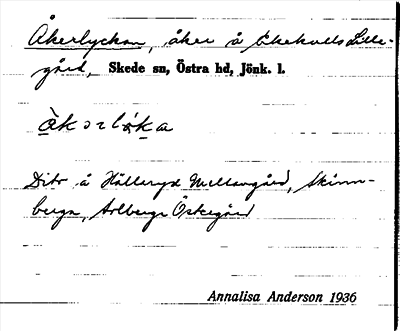 Åkerlyckan, åker å Ekekulls Lille-
gård, Skede sn, Östra hd, Jönk. l.
Dito å Hälleryd Mellangård, Skinn-
berga, Östergård
Annalisa Anderson 1936